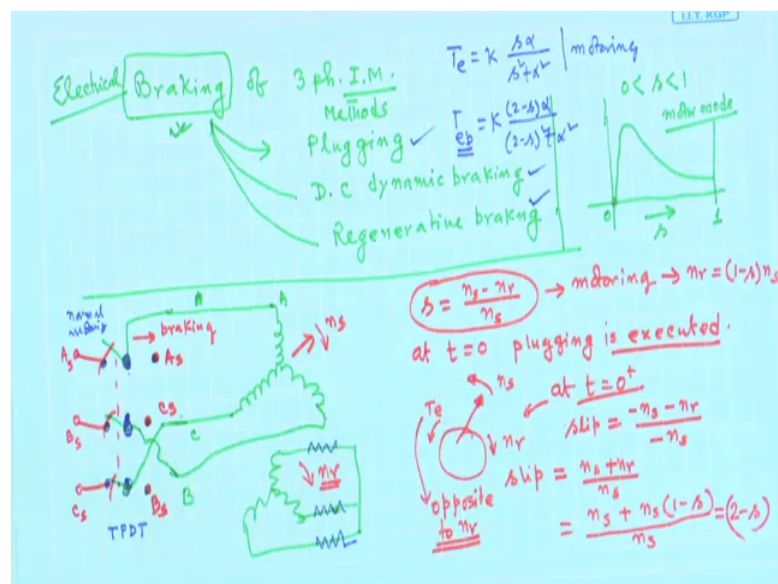 I.I.T. KGP
Electrical Braking of 3 ph. I.M.
Methods
Plugging ✓
D.C dynamic braking ✓
Regenerative brakng ✓
Te = K sα / s²+α² | motoring
Teb = K (2-s)α / (2-s)²+α²
0 < s < 1
motor mode
0 s 1
normal
braking
As
As
A
A
ns
Bs
Cs
C
Cs
Bs
B
TPDT
nr
s = ns - nr / ns → motoring → nr = (1-s)ns
at t=0 plugging is executed.
ns
at t=0⁺
Te
nr
slip = -ns - nr / -ns
opposite
to nr
slip = ns + nr / ns
= ns + ns(1-s) / ns = (2-s)